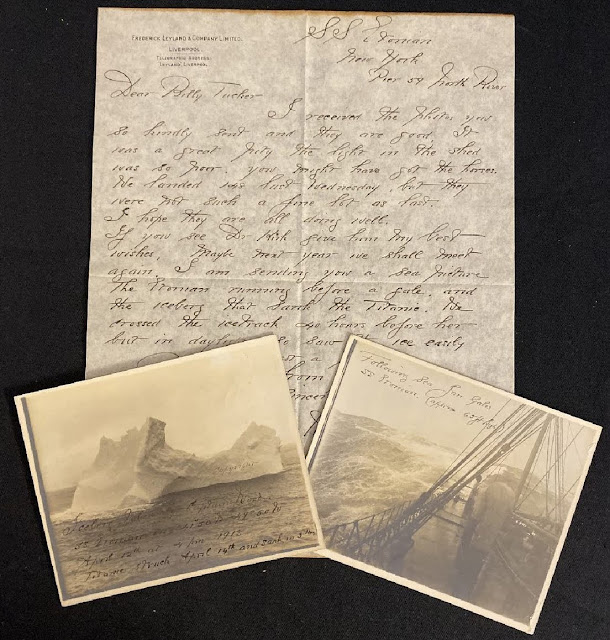 FREDERICK LEYLAND & COMPANY LIMITED.
LIVERPOOL
TELEGRAPHIC ADDRESS:
LEYLAND, LIVERPOOL.
SS Etonian
New York
Pier 59 North River
Dear Billy Tucker
I received the photos you
so kindly sent and they are good. It
was a great pity the light in the shed
was so poor. you might have got the horses.
We landed last Wednesday, but they
were not such a fine lot as last.
I hope they are all doing well.
If you see Dr give him my best
wishes, Maybe next year we shall meet
again. I am sending you a sea picture
The Etonian running before a gale, and
the iceberg that sank the Titanic. We
crossed the ice track 40 hours before her
but in saw the ice easily
from
Copyright
Iceberg
SS Etonian
April 12th at 4 pm 1912
Titanic struck April 14th and sank in 3 hrs
Following Sea Gale
SS Etonian